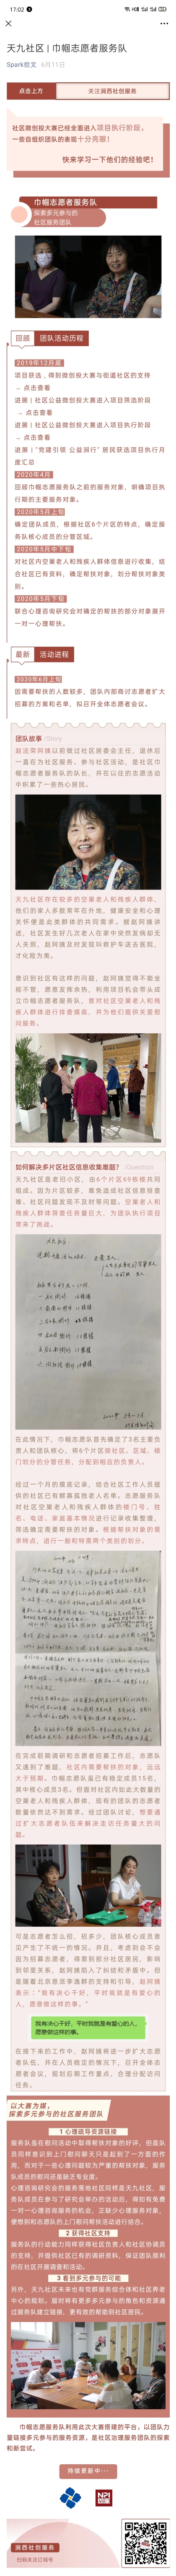 17:02
天九社区 | 巾帼志愿者服务队
Spark给文 6月11日
点击上方
关注涧西社创服务
社区微创投大赛已经全面进入项目执行阶段，
一些自组织团队的表现十分亮眼！
快来学习一下他们的经验吧！
巾帼志愿者服务队
探索多元参与的
社区服务团队
回顾
团队活动历程
2019年12月底
项目获选，得到微创投大赛与街道社区的支持
→ 点击查看
进展 | 社区公益微创投大赛进入项目筛选阶段
→ 点击查看
进展 | 社区公益微创投大赛进入项目执行阶段
→ 点击查看
进展 | “党建引领 公益涧行” 居民获选项目执行月
度汇总
2020年4月
回顾巾帼志愿服务队之前的服务对象，明确项目执
行期的主要服务对象。
2020年5月上旬
确定团队成员，根据社区6个片区的特点，确定服
务队核心成员的分管区域。
2020年5月中下旬
对社区内空巢老人和残疾人群体信息进行收集，结
合社区已有资料，确定帮扶对象，划分帮扶对象类
别。
2020年5月下旬
联合心理咨询研究会对确定的帮扶的部分对象展开
一对一心理帮扶。
最新
活动进程
2020年6月上旬
因需要帮扶的人数较多，团队内部商讨志愿者扩大
招募的方案和名单，拟召开全体志愿者会议。
团队故事 /Story
赵法荣阿姨以前做过社区居委会主任，退休后
一直在为社区服务、参与社区活动，是社区巾
帼志愿者服务队的队长，并在以往的志愿活动
中积累了一些热心居民。
天九社区存在较多的空巢老人和残疾人群体，
他们的家人多数常年在外地，健康安全和心理
关怀便是此类群体的共同需求。据赵阿姨讲
述，社区发生好几次老人在家中突然发病却无
人关照，赵阿姨及时发现叫救护车送去医院，
才化险为夷。
意识到社区有这样的问题，赵阿姨觉得不能坐
视不管，愿意发挥余热，利用项目机会带头成
立巾帼志愿者服务队，意对社区空巢老人和残
疾人群体进行排查摸底，并为他们提供关爱慰
问服务。
如何解决多片区社区信息收集难题？ /Question
天九社区是老旧小区，由6个片区69栋楼共同
组成。因为片区较多，难免造成社区信息排查
难、社区问题发现不及时等问题。空巢老人和
残疾人群体筛查任务量巨大，为团队执行项目
带来了挑战。
在此情况下，巾帼志愿队首先确定了3名主要负
责人和团队核心，将6个片区按社区、区域、楼
门划分的分管任务，分配到相应的负责人。
经过一个月的摸底记录，结合社区工作人员提
供的社区已有鳏寡孤独老人名单，志愿服务队
对社区空巢老人和残疾人群体的楼门号、姓
名、电话、家庭基本情况进行记录收集整理，
筛选确定需要帮扶的对象。根据帮扶对象的需
求特点，进行一般和特需两个类别的划分。
在完成前期调研和志愿者招募工作后，志愿队
又遇到了难题，社区内需要帮扶的对象，远远
大于预期。巾帼志愿队虽已有稳定成员15名，
其中核心成员3名。但面对社区内如此大数量的
空巢老人和残疾人群体，现有的团队的志愿者
数量依然达不到需求。经过团队讨论，想要通
过扩大志愿者队伍来解决走访任务量大的问
题。
可是志愿者怎么招，招多少，团队核心成员意
见产生了不统一的情况。并且，考虑到会不会
因为招募志愿者，得罪到了部分社区居民，影响
到邻里关系，赵阿姨陷入了纠结和矛盾中。但
是揣着北京恩派李逸群的支持和引导，赵阿姨
表示：“我有决心干好，平时我就是有爱心的
人，愿意做这样的事。”
我有决心干好，平时我就是有爱心的人，
愿意做这样的事。
在接下来的工作中，赵阿姨将进一步扩大志愿
者队伍，并在人员稳定的情况下，召开全体志
愿者会议，规划后期工作重点，分配走访
任务。
以大赛为媒，
探索多元参与的社区服务团队
1 心理疏导资源链接
服务队是在慰问活动中取得帮扶对象的好评，但是队
员同样意识到上门慰问聊天只是起到了一方面的作
用，而对于一些心理问题较为严重的帮扶对象，服务
队成员的慰问还是缺乏专业度。
心理咨询研究会的服务落地社区同样是天九社区，服
务队成员在参与了研究会举办的活动后，得知有免费
一对一心理咨询服务的机会，在缺少心理服务对象，
便想到和志愿队的上门慰问帮扶活动进行结合。
2 获得社区支持
服务队的行动能力同样获得社区负责人和社区协调员
的支持，并提供社区已有的调研资料，保证团队顺利
的在社区开展调查和活动。
3 看到多元参与的可能
另外，天九社区未来也有党群服务综合体和社区养老
中心的规划。届时将有更多多元参与的角色和资源通
过服务队建立链接，更有效的帮助到社区居民。
巾帼志愿服务队利用此次大赛搭建的平台，以团队力
量链接多元参与的服务资源，是社区治理服务团队的探索
和新尝试。
持续更新中···
NPI
涧西社创服务
扫码关注订阅号